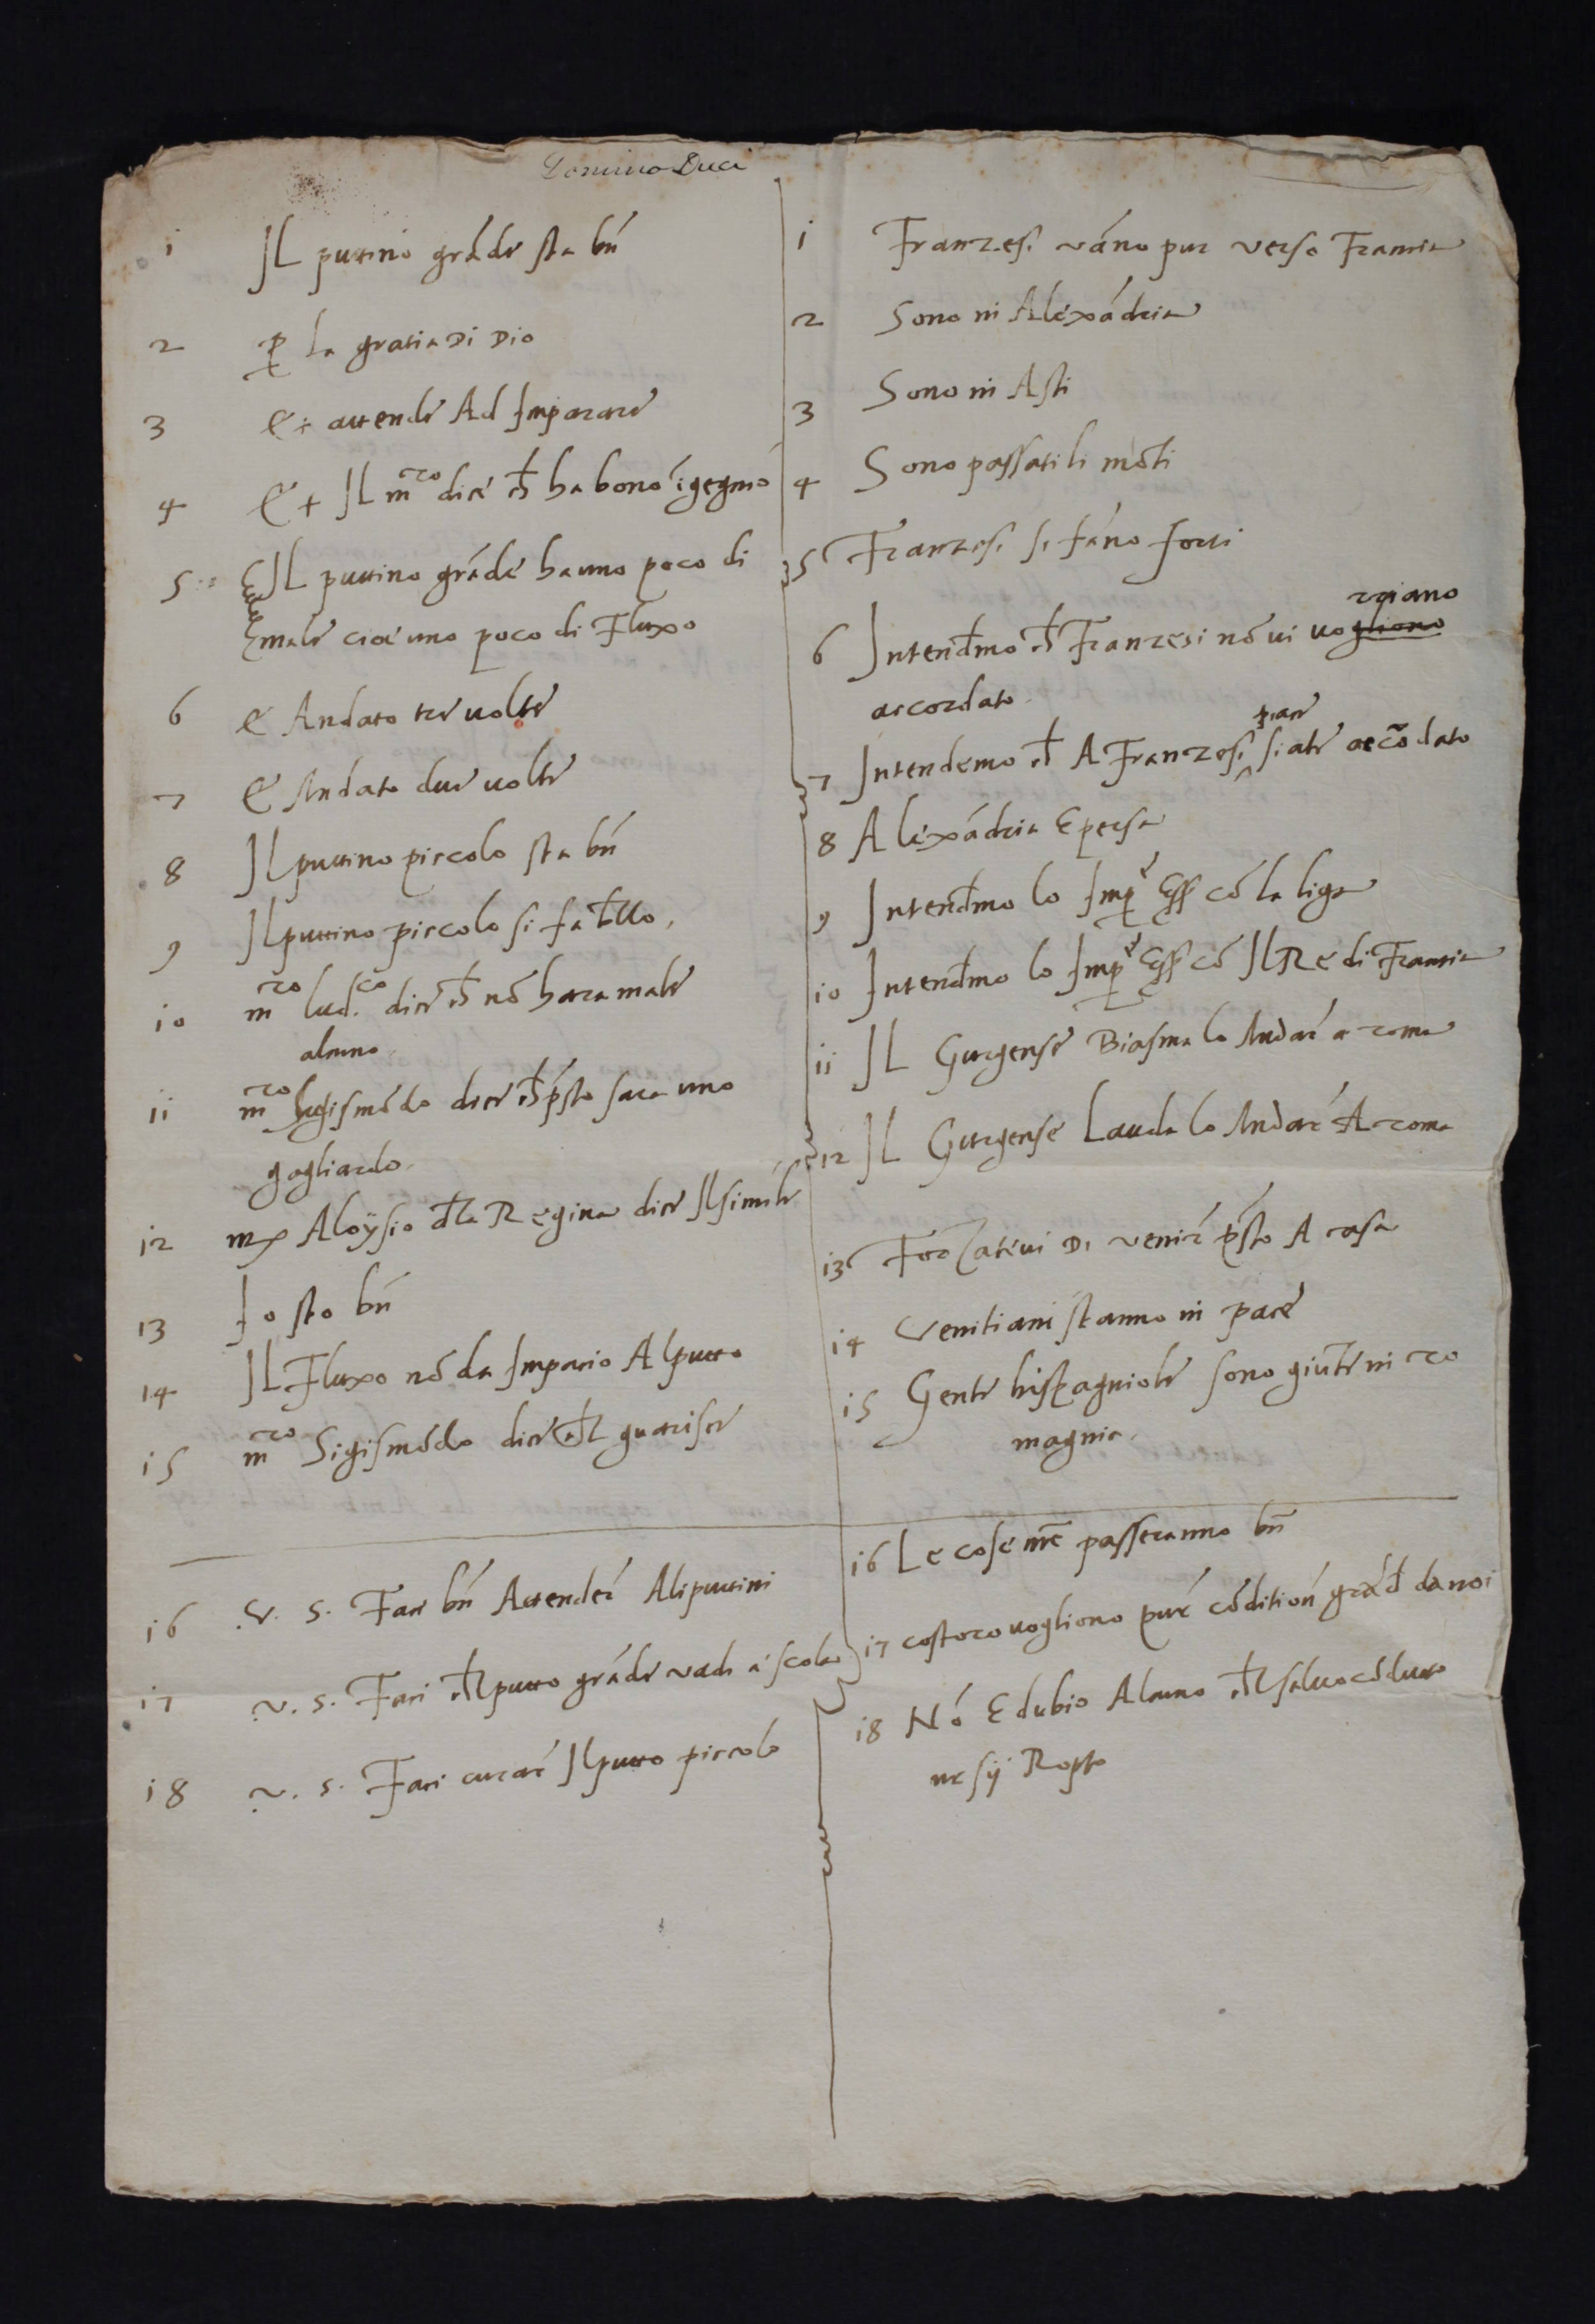 Domino Duci
1 Il puttino grãde sta bñ
2 ꝑ la gratia Di Dio
3 Et attende Ad Imparare
4 Et Il mro dice ch̃ ha bono ĩgegnio
5 Il puttino grãde ha uno poco di
male cioe uno poco di Fluxo
6 E Andato tre uolte
7 E Andato due uolte
8 Il puttino piccolo sta bñ
9 Il puttino piccolo si fa b̃llo.
10 mro lud.co dice ch̃ nõ hara male
alcuno.
11 mro Sigismõdo dice ch̃ p̃sto sara uno
gagliardo.
12 mẋ Aloysio d̃la Regina dice Il simile
13 Io sto bñ
14 Il Fluxo nõ da Impacio Al putto
15 mro Sigismõdo dice ch̃l guarisce
16 V. S. Faci bñ Attender̃ Ali puttini
17 V. S. Faci ch̃l putto grãde vadi a scola
18 V. S. Faci curar̃ Il putto piccolo
1 Franzesi vãno pur verso Francia
2 Sono in Alexãdria
3 Sono in Asti
4 Sono passati li mõti
5 Franzesi si fãno forti
6 Intend̃mo ch̃ Franzesi nõ ui uogliono
accordato.
7 Intendemo ch̃ A Franzesi siate accõdato
8 Alexãdria E persa
9 Intend̃mo lo Imp̃ Ess̃ cõ la liga
10 Intend̃mo lo Imp̃ Ess̃ cõ Il Re di Francia
11 Il Gurgense Biasma lo Andar̃ a roma
12 Il Gurgense Lauda lo Andar̃ A roma
13 Forzativi Di venir̃ p̃sto A casa
14 Venitiani stanno in pace
15 Gente hispagniole sono giũte in ro
magnia.
16 Le cose nr̃e passeranno bñ
17 costoro uogliono pur̃ cõdition̄ grãd̃ da noi
18 Nõ E dubio Alcuno ch̃l saluocõdutto
ne sij Rotto